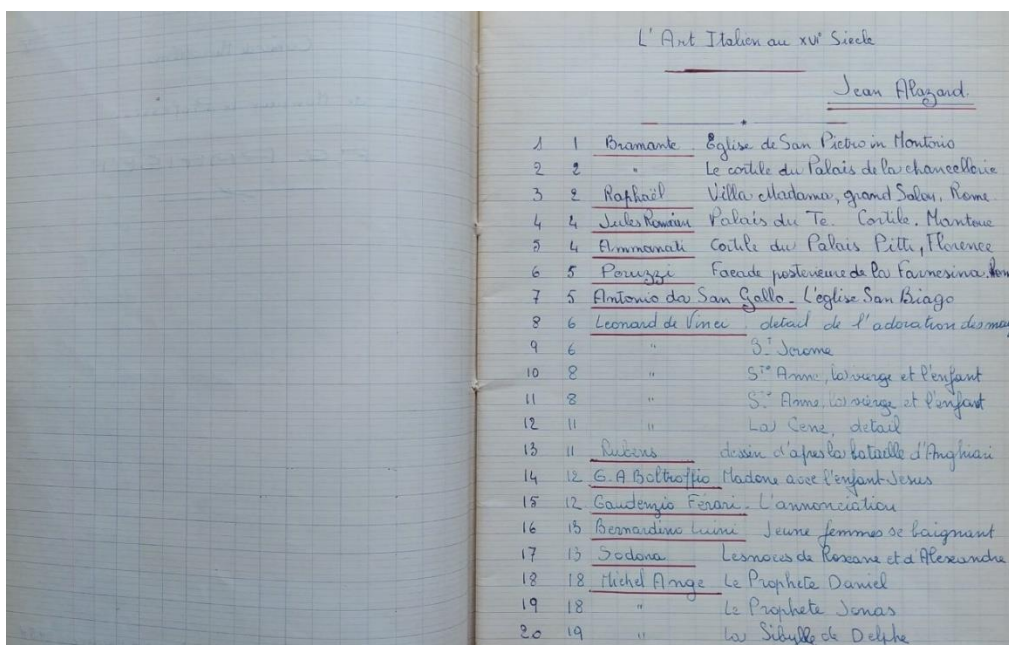 L'Art Italien au XVIe Siecle
Jean Alazard.
1 1 Bramante Eglise de San Pietro in Montorio
2 2 " Le cortile du Palais de la chancellerie
3 2 Raphaël Villa Madama, grand Salon, Rome.
4 4 Jules Romain Palais du Te. Cortile. Mantoue
5 4 Ammanati Cortile du Palais Pitti, Florence
6 5 Peruzzi Facade posterieure de la Farnesina.
7 5 Antonio da San Gallo. L'eglise San Biago
8 6 Leonard de Vinci. detail de l'adoration des
9 6 " St Jerome
10 8 " Ste Anne, la vierge et l'enfant
11 8 " Ste Anne, la vierge et l'enfant
12 11 " La Cene, detail
13 11 Rubens dessin d'apres la bataille d'Anghiari
14 12 G. A Boltroffio Madone avec l'enfant Jesus
15 12 Gaudenzio Férari. L'annonciation
16 13 Bernardino Luini Jeune femmes se baignant
17 13 Sodona Les noces de Roxane et d'Alexandre
18 18 Michel Ange Le Prophete Daniel
19 18 " Le Prophete Jonas
20 19 " La Sibylle de Delphe